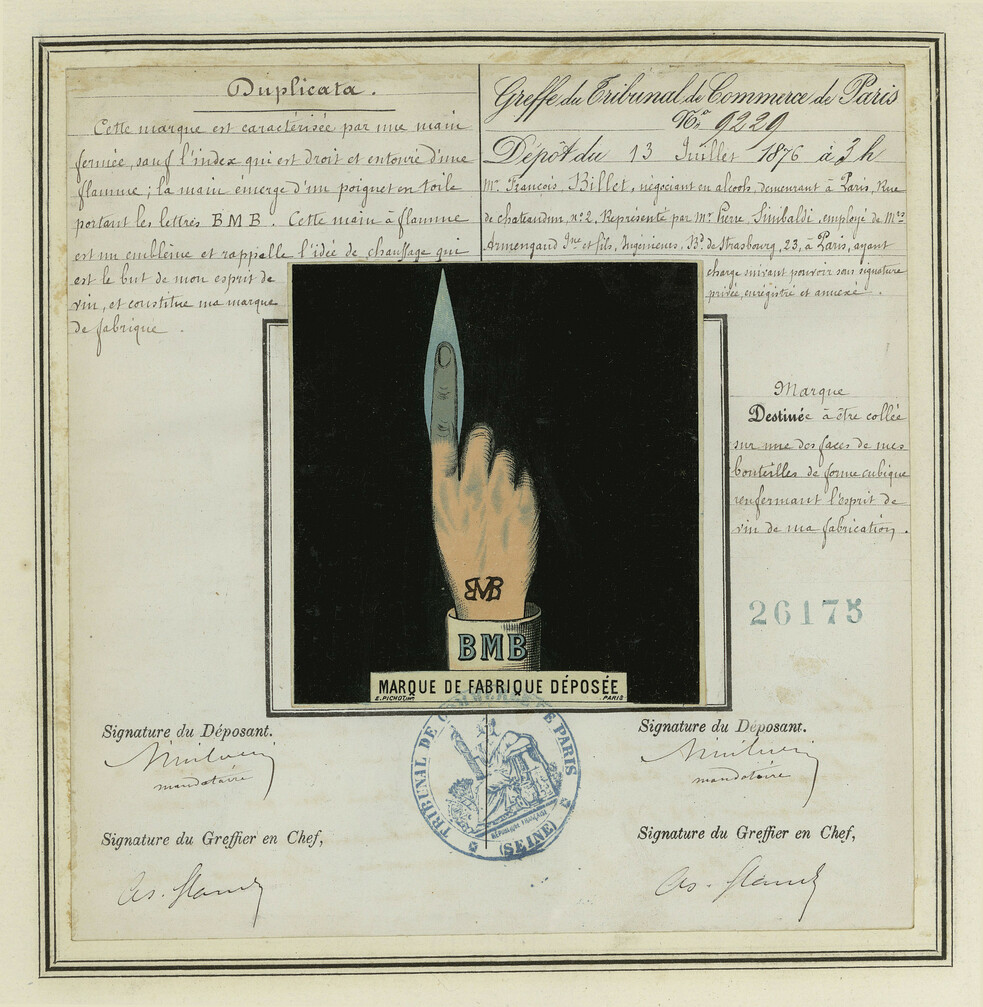 Duplicata.
Cette marque est caractérisée par une main
fermée, sauf l'index qui est droit et entouré d'une
flamme ; la main émerge d'un poignet en toile
portant les lettres BMB. Cette main à flamme
est un emblême et rappelle l'idée de chauffage qui
est le but de mon esprit de
vin, et constitue ma marque
de fabrique.
Greffe du Tribunal de Commerce de Paris
No 9229
Dépôt du 13 Juillet 1876 à 3 h
Mr. François Billet, négociant en alcools, demeurant à Paris, Rue
de chateaudun, no 2, Représenté par Mr. Pierre Sinibaldi, employé de Mrs
Armengaud Jne et fils, Ingénieurs, Bd. de Strasbourg, 23, à Paris, ayant
charge suivant pouvoir sous signature
privée, enrégistré et annexé.
Marque
Destinée à être collée
sur une des faces de mes
bouteilles de forme cubique
renfermant l'esprit de
vin de ma fabrication.
BMB
BMB
MARQUE DE FABRIQUE DÉPOSÉE
E. PICHOT PARIS
26175
Signature du Déposant.
mandataire
Signature du Greffier en Chef,
TRIBUNAL DE COMMERCE DE PARIS
RÉPUBLIQUE FRANÇAISE
(SEINE)
Signature du Déposant.
mandataire
Signature du Greffier en Chef,